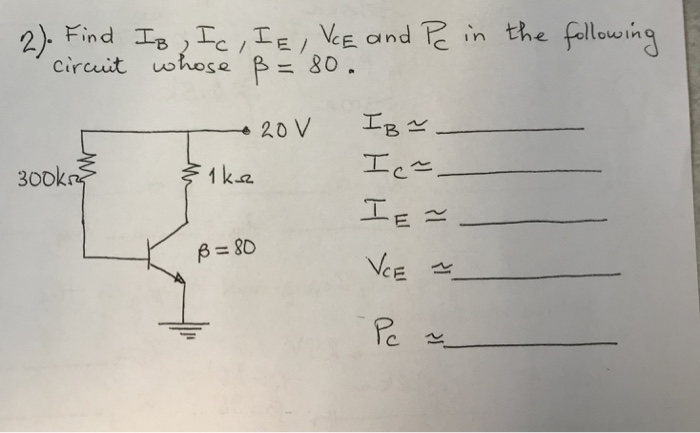 2). Find IB, IC, IE, VCE and PC in the following
circuit whose β = 80.
20 V
300kΩ
1kΩ
β = 80
IB ≃
IC ≃
IE ≃
VCE ≃
PC ≃